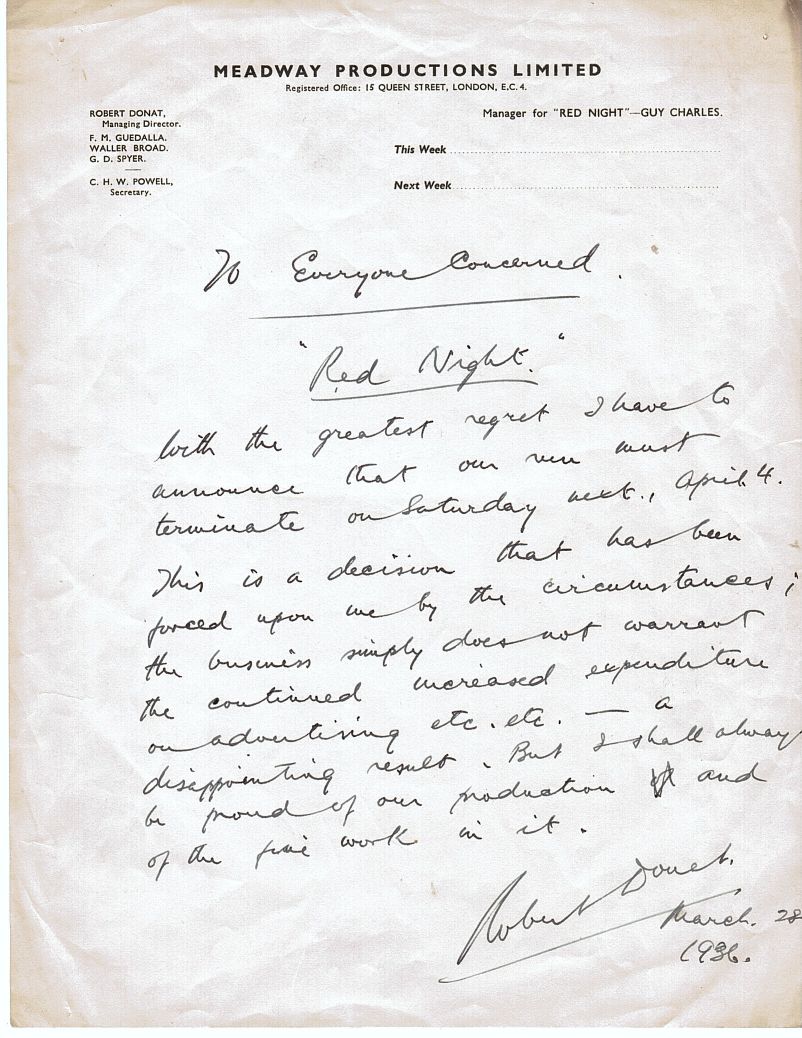 MEADWAY PRODUCTIONS LIMITED
Registered Office: 15 QUEEN STREET, LONDON, E.C. 4.
ROBERT DONAT,
Managing Director.
F. M. GUEDALLA.
WALLER BROAD.
G. D. SPYER.
C. H. W. POWELL,
Secretary.
Manager for "RED NIGHT"—GUY CHARLES.
This Week
Next Week
To Everyone Concerned.
"Red Night."
With the greatest regret I have to
announce that our run must
terminate on Saturday next, April 4.
This is a decision that has been
forced upon me by the circumstances;
the business simply does not warrant
the continued increased expenditure
on advertising etc. etc. — a
disappointing result. But I shall always
be proud of our production and
of the fine work in it.
Robert Donat.
March. 28
1936.